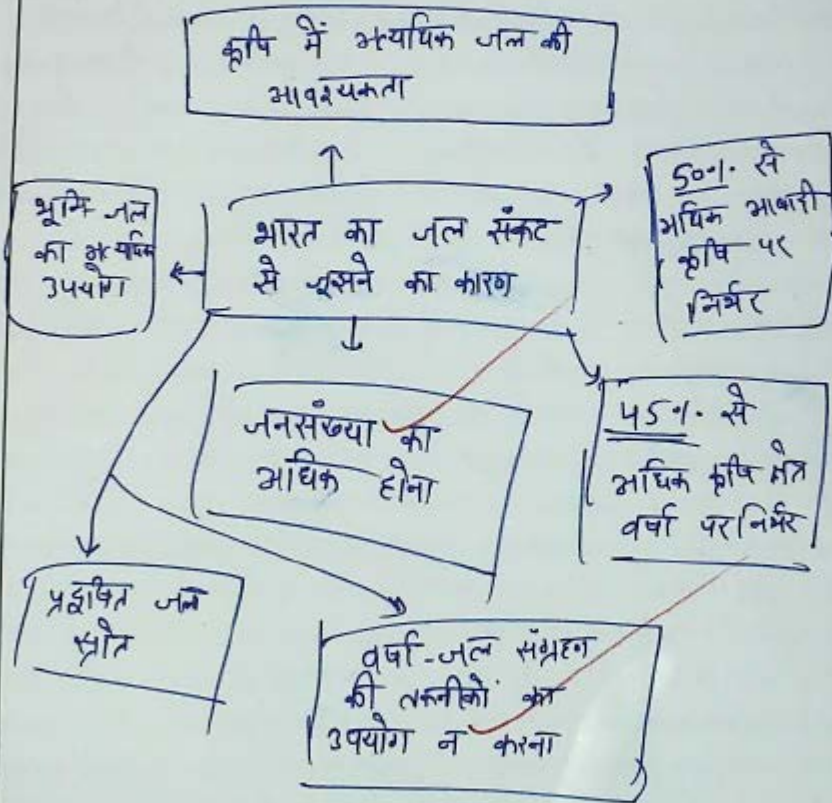 कृषि में अत्यधिक जल की
आवश्यकता
भूमि जल
का अत्यधिक
उपयोग
भारत का जल संकट
से जूझने का कारण
50% से
अधिक आबादी
कृषि पर
निर्भर
जनसंख्या का
अधिक होना
45% से
अधिक कृषि क्षेत्र
वर्षा पर निर्भर
प्रदूषित जल
स्रोत
वर्षा-जल संग्रहन
की तकनीकों का
उपयोग न करना